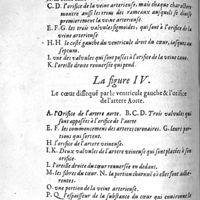 C. D. l'orifice de la veine arterieuse, mais chaque charactere
monstre aussi trois des rameaux ausquels se divise
premierement la veine arterieuse.
E. F. G. les trois valvules sigmoides, qui sont à l'orifice de la
veine arterieuse
H. H. le costé gauche du ventricule droit du cœur, jusques au
septum.
I. une des valvules qui sont posées à l'orifice de la veine cave.
K. l'oreille droite renversée qui pend.
La figure IV.
Le cœur dissequé par le ventricule gauche & l'orifice
de l'artere Aorte.
A. l'Orifice de l'artere aorte. B. C. D. Trois valvules qui
sont apposées à l'orifice de l'aorte
E. F. les commencemens des arteres coronaires. G. leurs por-
tions qui sortent.
H. l'orifice de l'artere veineuse.
I. K. Deux valvules de l'artere veineuse qui sont placées à son
orifice.
L. l'oreille droite du cœur renversée en dedans.
M. les fibres du cœur. N. la portion charneuse où elles sont
attachées.
O. une portion de la veine arterieuse.
P. Q. l'espaisseur de la substance du cœur qui environne le